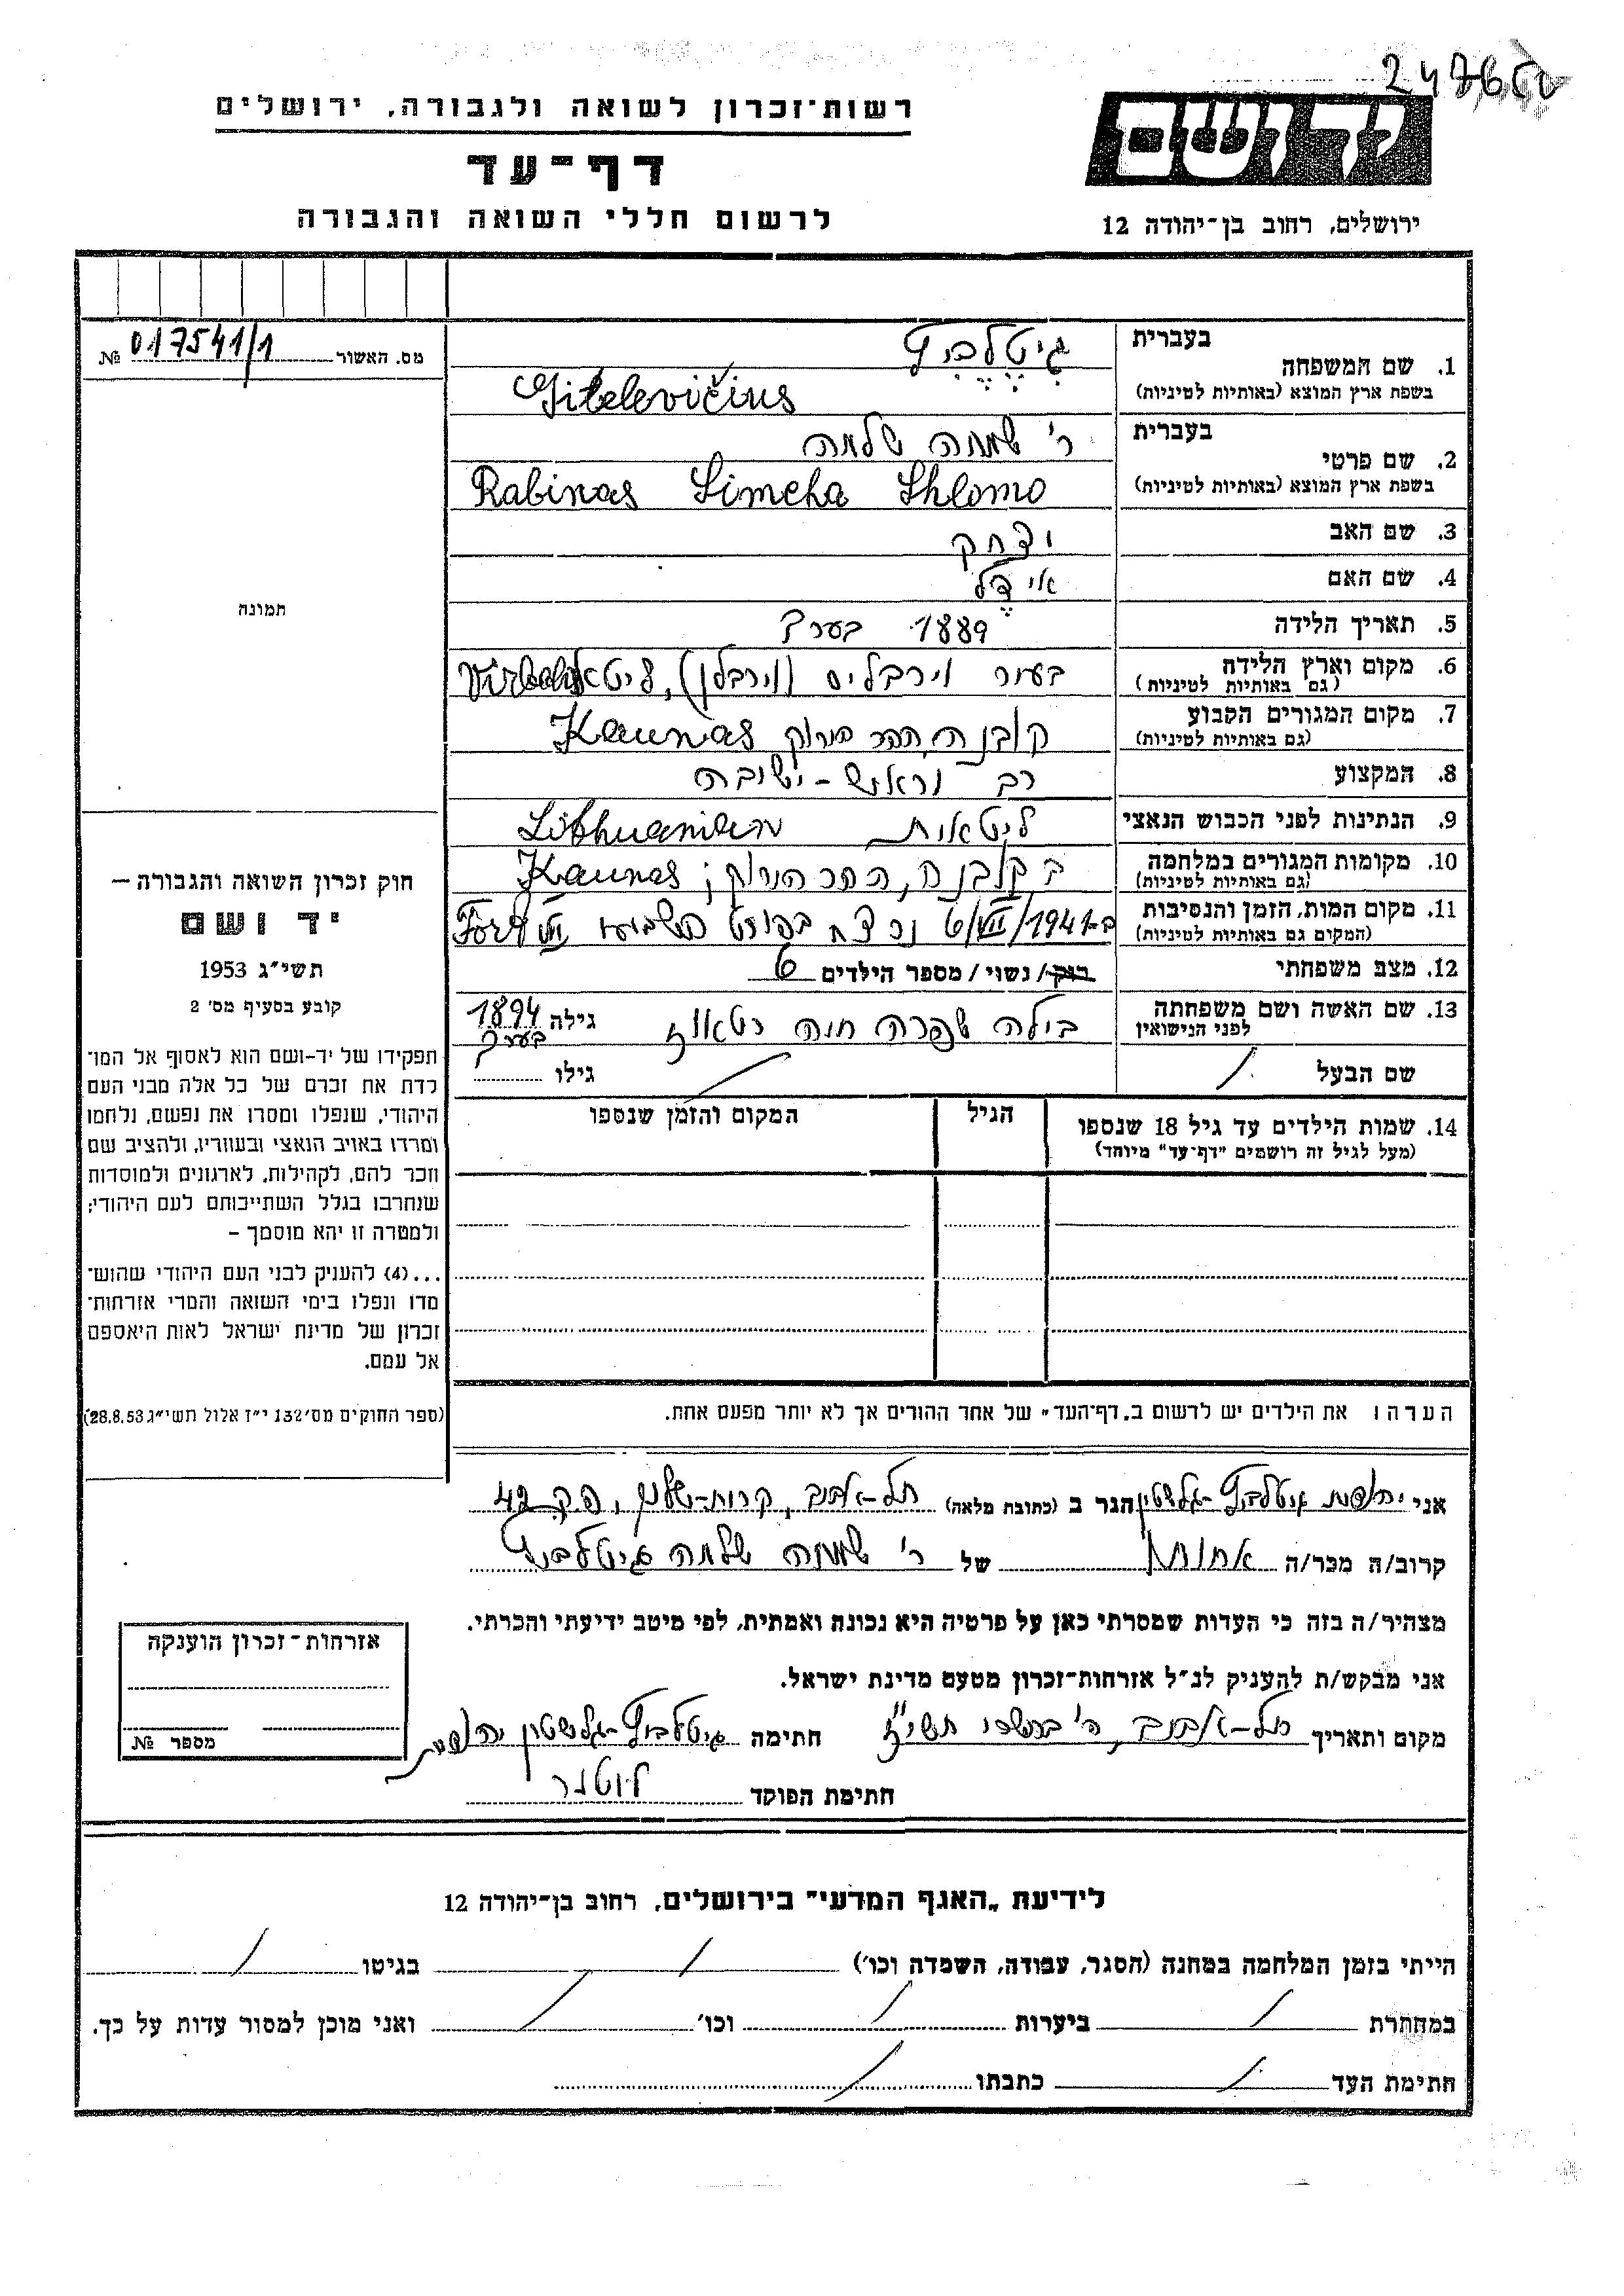 רשות־זכרון לשואה ולגבורה, ירושלים
דף־עד
לרשום חללי השואה והגבורה
יד ושם
ירושלים, רחוב בן־יהודה 12
מס. האשור № 017541/1
תמונה
חוק זכרון השואה והגבורה —
יד ושם
תשי״ג 1953
קובע בסעיף מס׳ 2
תפקידו של יד־ושם הוא לאסוף אל המו־
לדת את זכרם של כל אלה מבני העם
היהודי, שנפלו ומסרו את נפשם, נלחמו
ומרדו באויב הנאצי ובעוזריו, ולהציב שם
וזכר להם, לקהילות, לארגונים ולמוסדות
שנחרבו בגלל השתייכותם לעם היהודי;
ולמטרה זו יהא מוסמך —
...(4) להעניק לבני העם היהודי שהוש־
מדו ונפלו בימי השואה והמרי אזרחות־
זכרון של מדינת ישראל לאות היאספם
אל עמם.
(ספר החוקים מס׳ 132 י״ז אלול תשי״ג 28.8.53)
בעברית גיטלביץ
1. שם המשפחה
בשפת ארץ המוצא (באותיות לטיניות) Gitelevičius
בעברית ר' שמחה שלמה
2. שם פרטי
בשפת ארץ המוצא (באותיות לטיניות) Rabinas Simcha Shlomo
3. שם האב יצחק
4. שם האם
5. תאריך הלידה 1889 בערך
6. מקום וארץ הלידה בעיר וירבליס (וירבלן), ליטא
(גם באותיות לטיניות)
7. מקום המגורים הקבוע קובנה, Kaunas
(גם באותיות לטיניות)
8. המקצוע רב וראש-ישיבה
9. הנתינות לפני הכבוש הנאצי ליטאית Lithuanian
10. מקומות המגורים במלחמה בקובנה, Kaunas
(גם באותיות לטיניות)
11. מקום המות, הזמן והנסיבות ב-6/VII/1941 נרצח בפורט השביעי Fort VII
(המקום גם באותיות לטיניות)
12. מצב משפחתי רוק/ נשוי / מספר הילדים 6
13. שם האשה ושם משפחתה לפני הנישואין בילה שפרה חנה גילה 1894 בערך
שם הבעל / גילו /
14. שמות הילדים עד גיל 18 שנספו הגיל המקום והזמן שנספו
(מעל לגיל זה רושמים "דף־עד" מיוחד)
הערה: את הילדים יש לרשום ב„דף־העד" של אחד ההורים אך לא יותר מפעם אחת.
אני גיטלביץ הגר ב (כתובת מלאה) תל-אביב, 42
קרוב/ה מכר/ה אחות של ר' שמחה שלמה גיטלביץ
מצהיר/ה בזה כי העדות שמסרתי כאן על פרטיה היא נכונה ואמתית, לפי מיטב ידיעתי והכרתי.
אני מבקש/ת להעניק לנ״ל אזרחות־זכרון מטעם מדינת ישראל.
מקום ותאריך תל-אביב, ה' בתשרי תשי״ז חתימה גיטלביץ
חתימת הפוקד
אזרחות־זכרון הוענקה
מספר №
לידיעת „האגף המדעי" בירושלים, רחוב בן־יהודה 12
הייתי בזמן המלחמה במחנה (הסגר, עבודה, השמדה וכו׳) / בגיטו /
במחתרת / ביערות / וכו׳ / ואני מוכן למסור עדות על כך.
חתימת העד / כתבתו /